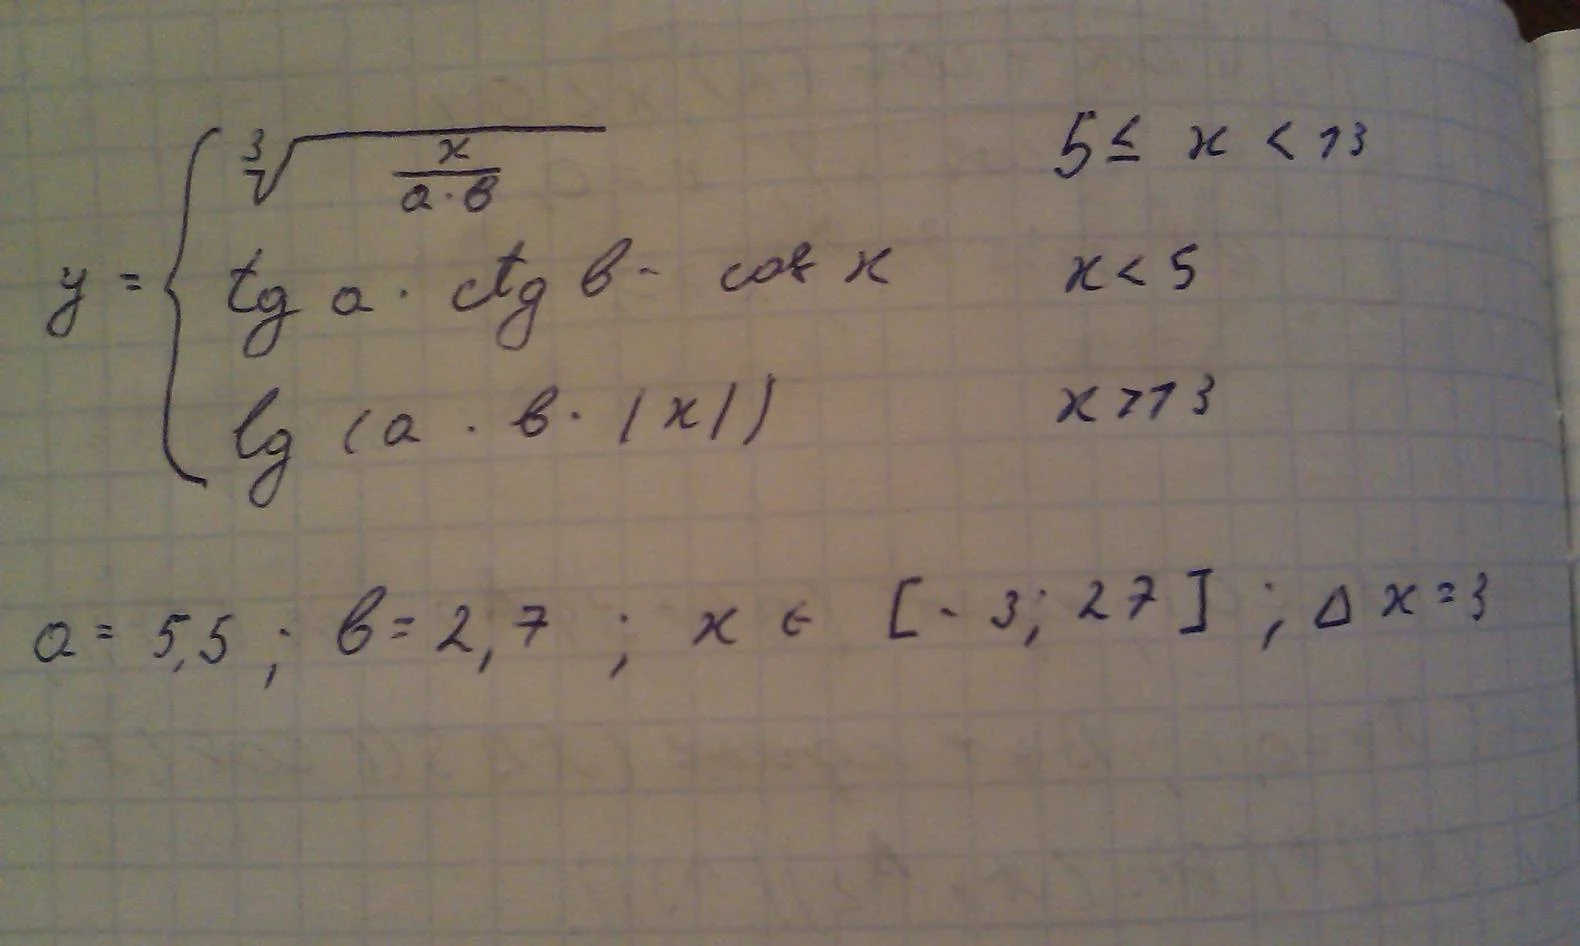 y = { ∛(x / (a · в))   5 ≤ x < 13
tg a · ctg в - cos x   x < 5
lg (a · в · |x|)   x > 13
a = 5,5 ; в = 2,7 ; x ∈ [-3; 27] ; Δ x = 3